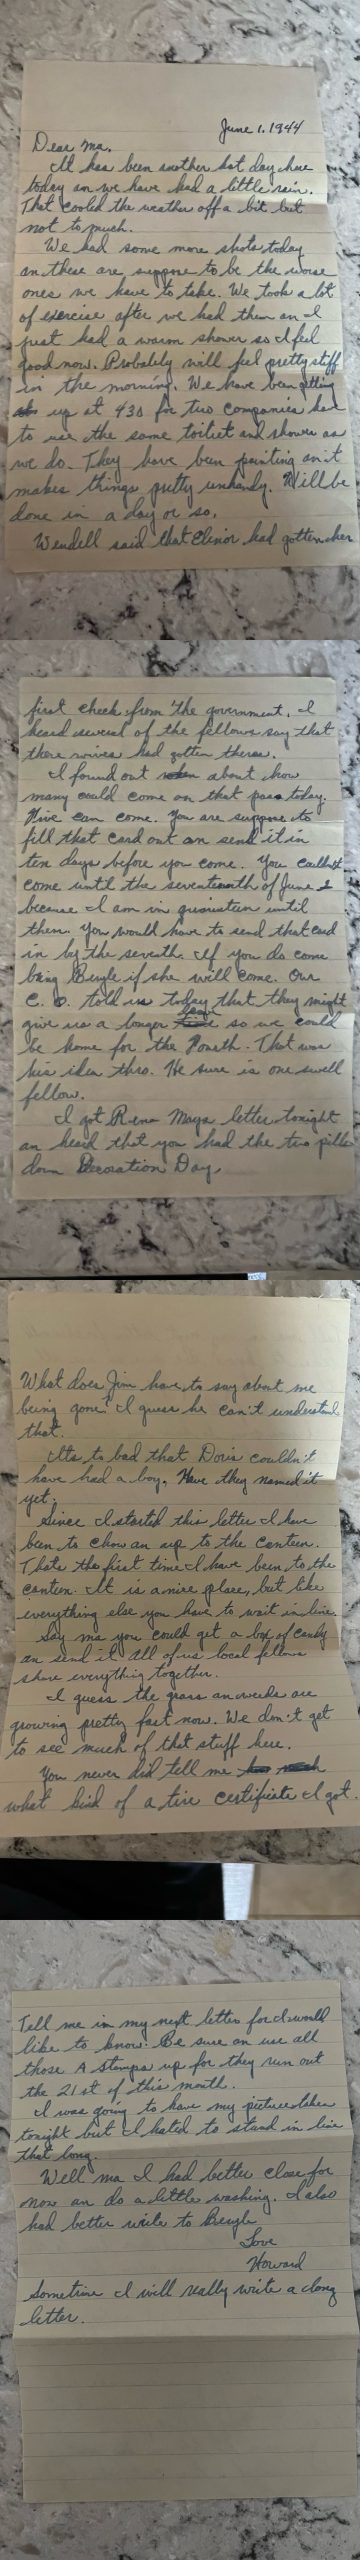 June 1, 1944
Dear Ma,
It has been another hot day here
today an we have had a little rain.
That cooled the weather off a bit but
not to much.
We had some more shots today
an these are suppose to be the worse
ones we have to take. We took a lot
of exercise after we had them an I
just had a warm shower so I feel
good now. Probably will feel pretty stiff
in the morning. We have been getting
up at 430 for two companies have
to use the same toilet and shower as
we do. They have been painting an it
makes things pretty unhandy. Will be
done in a day or so.
Wendell said that Elinor had gotten her
first check from the government. I
heard several of the fellows say that
there wives had gotten theres.
I found out about how
many could come on that pass today.
Five can come. You are suppose to
fill that card out an send it in
ten days before you come. You couldn't
come until the seventeenth of June
because I am in quarintein until
then. You would have to send that card
in by the seventh. If you do come
bring Beryle if she will come. Our
C. O. told us today that they might
give us a longer leave so we could
be home for the Fourth. That was
his idea tho. He sure is one swell
fellow.
I got Rena Mays letter tonight
an heard that you had the two pills
down Decoration Day.
What does Jim have to say about me
being gone? I guess he can't understand
that.
Its to bad that Doris couldn't
have had a boy. Have they named it
yet.
Since I started this letter I have
been to chow an up to the canteen.
Thats the first time I have been to the
canteen. It is a nice place, but like
everything else you have to wait in line.
Say ma you could get a box of candy
an send it. All of us local fellows
share everything together.
I guess the grass an weeds are
growing pretty fast now. We don't get
to see much of that stuff here.
You never did tell me
what kind of a tire certificate I got.
Tell me in my next letter for I would
like to know. Be sure an use all
those A stamps up for they run out
the 21st of this month.
I was going to have my picture taken
tonight but I hated to stand in line
that long.
Well ma I had better close for
now an do a little washing. I also
had better write to Beryle
Love
Howard
Sometime I will really write a long
letter.